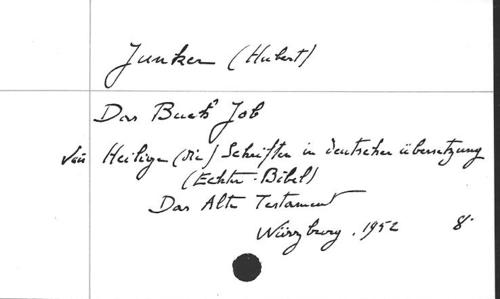 Junker (Hubert)
Das Buch Job
Heilige (die) Schriften in deutscher übersetzung
(Echter-Bibel)
Das Alte Testament
Würzburg. 1952 8°